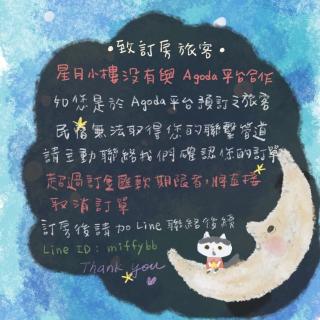 •致訂房旅客•
星月小樓沒有與 Agoda平台合作
如您是於Agoda平台預訂之旅客
民宿無法取得您的聯繫管道
請主動聯絡我們確認您的訂單
超過訂金匯款期限者,將直接
取消訂單
訂房後請加Line聯絡後續
Line ID: miffybb
Thank you